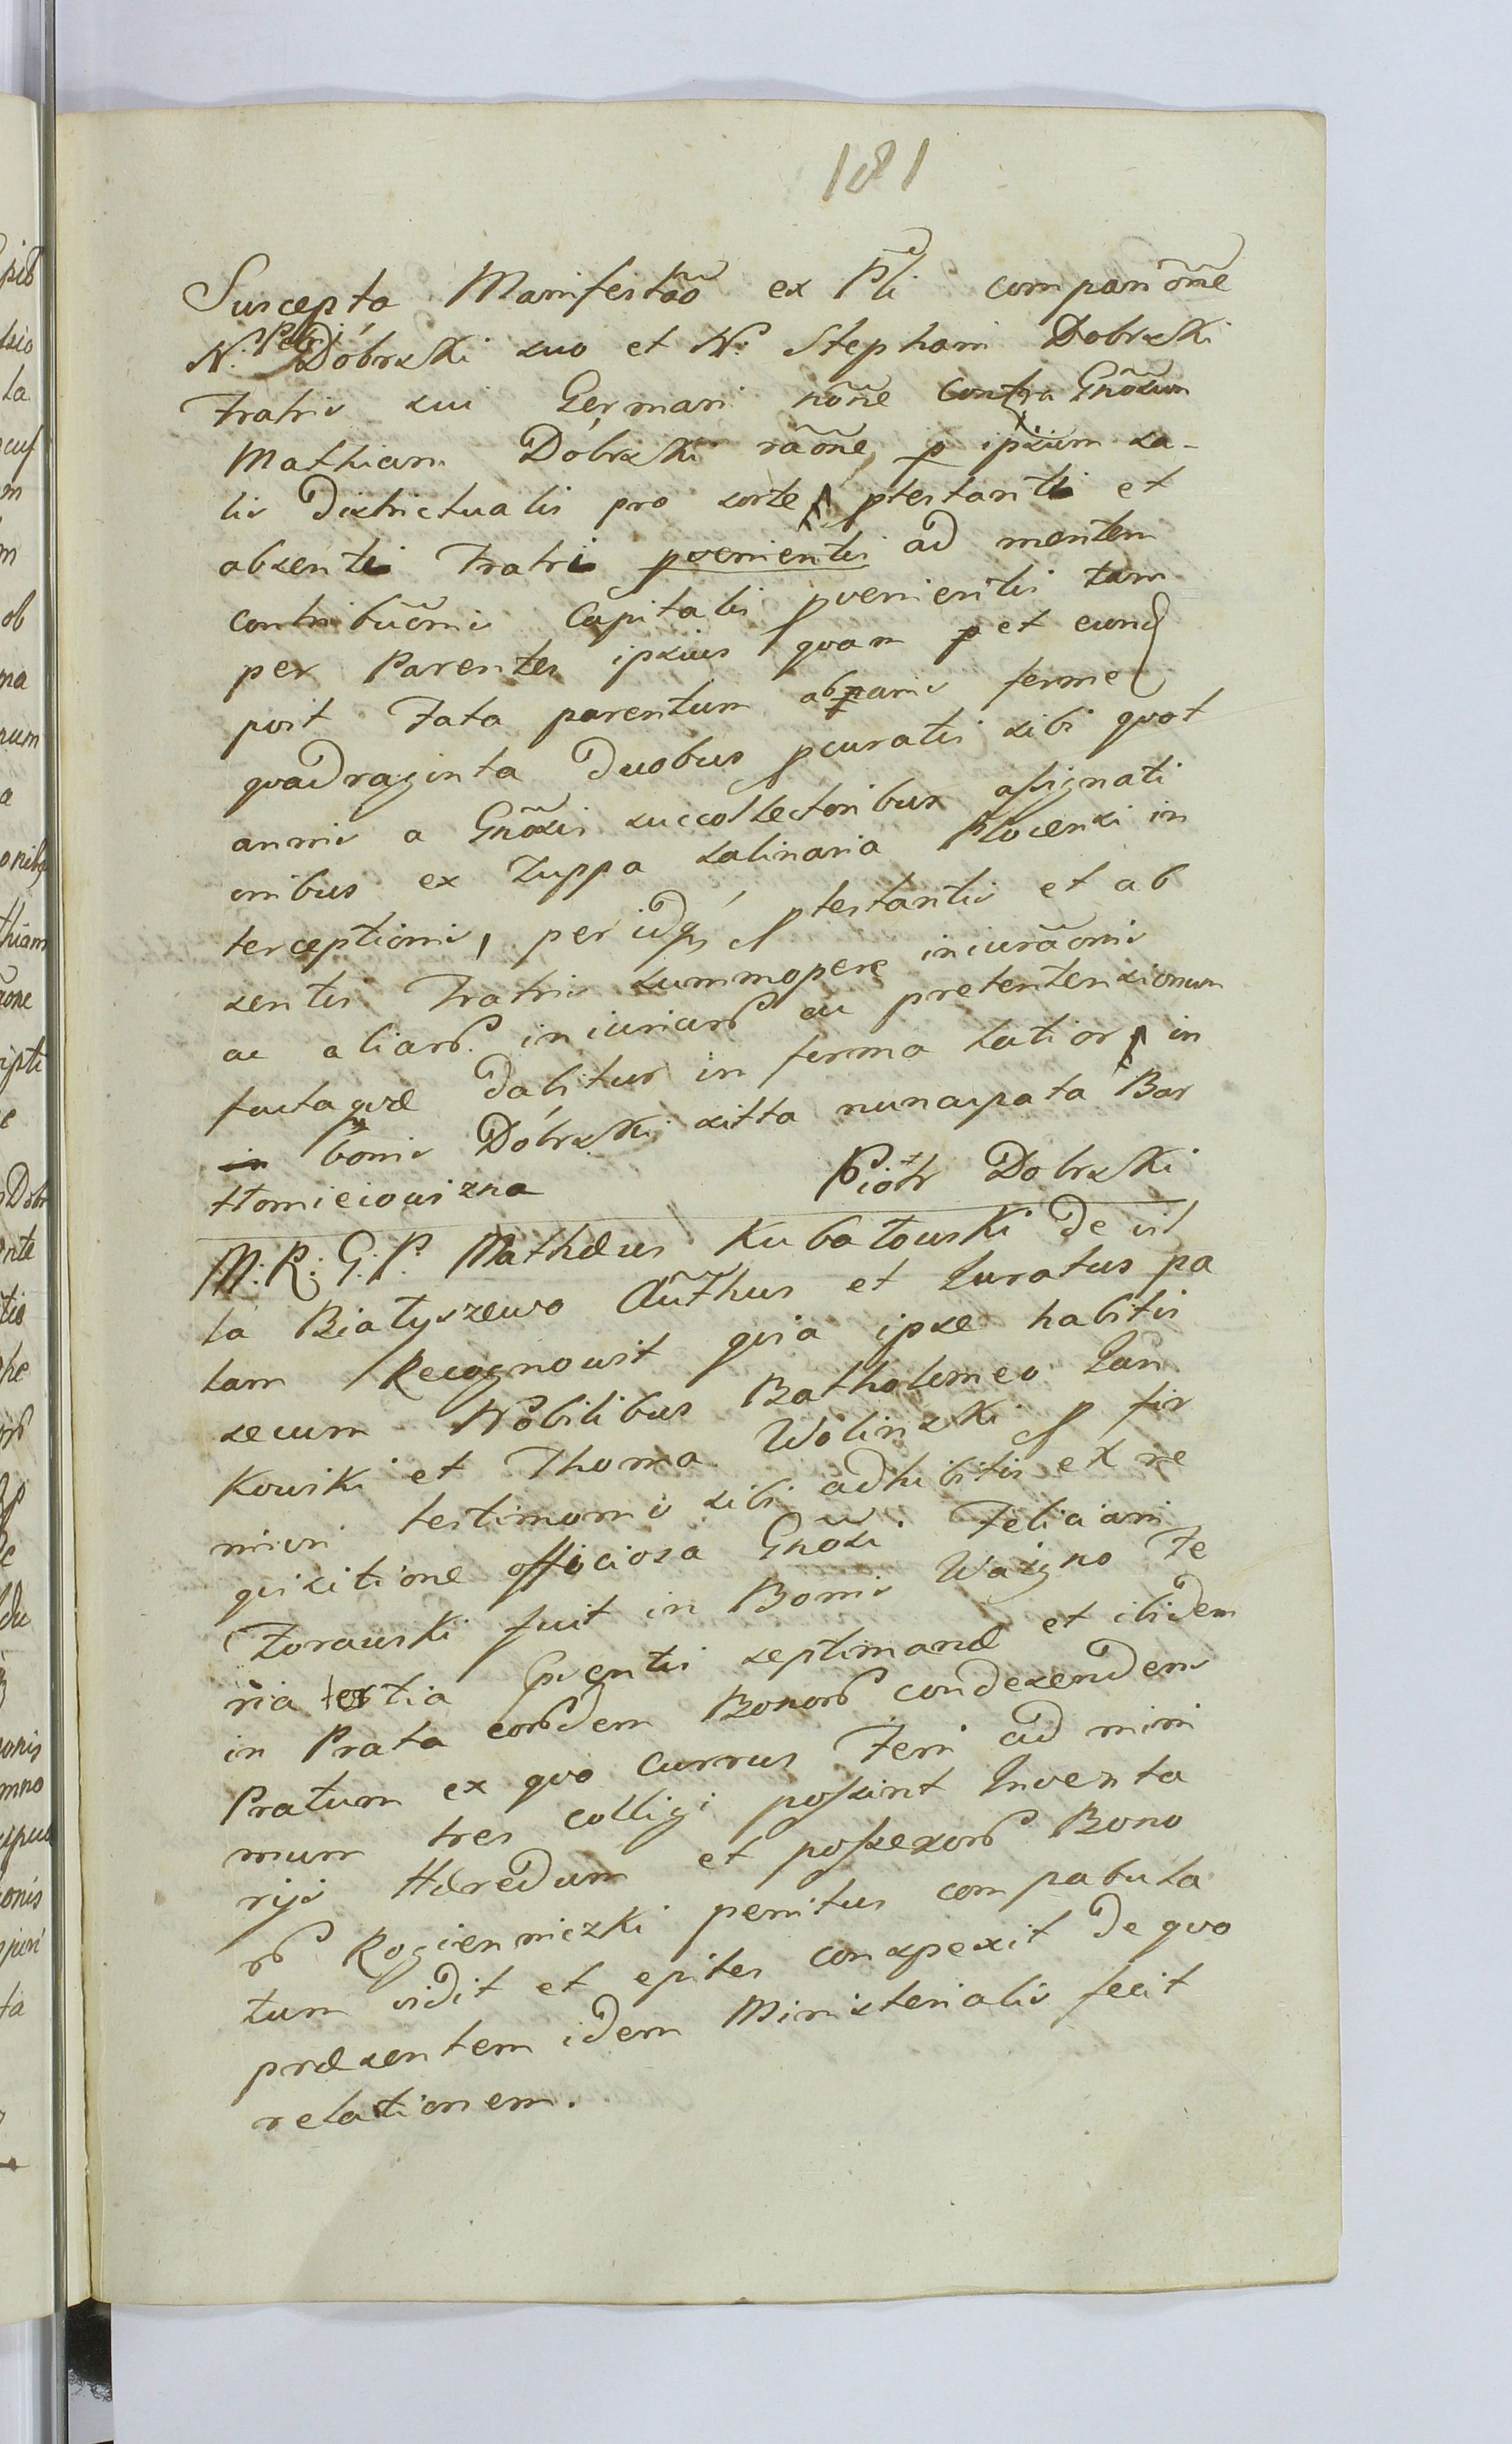 181
Suscepta Manifestaõ ex Pli comparitõne
N. Petri Dóbrski suo et N. Stephani Dobrski
Fratris sui Germani nõne contra Gnõsum
Mathiam Dóbrski rãõne p ipsum sa-
lis Districtualis pro sorte ptestanti et
absenti Fratri pvenientis ad mentem
contribuõnis Capitalis pvenientis tam
per Parentes ipsius quam p et eund
post Fata parentum ab annis ferme
quadraginta Duobus pcuratis sibi quot
annis a Gnõsis succollectoribus assignati
onibus ex Zuppa Salinaria Plocensi in
terceptionis, per idq, ptestantis et ab
sentis Fratris summopere iniurãõnis
ac aliarũ iniuriarũ ac pretentensionum
facta quæ dabitur in forma latiori in
bonis Dóbrski sitta nuncupata Bar
tłomieiowizna Piotr Dobrski
M. R. G. P. Mathæus Kubatowski de vil
la Białyszewo Aũthus et Iuratus pa
lam Recognovit quia ipse habitis
secum Nobilibus Batholomeo Lan
kowski et Thoma Wolinski p fir
miori testimonio sibi adhibitis ex re
quisitione officiosa Gnõsi Feliciani
Zorawski fuit in Bonis Waigno Fe
ria tertia septimanæ et ibidem
in Prata eorũdem Bonorũ condesendens
Pratum ex quo currus Feni ad mini
mum tres colligi possint Inventa
rijs Hæredum et possesorũ Bono
rũ Rogienniczki penitus compabula
tum vidit et epites conspexit de quo
præsentem idem Ministerialis fecit
relationem.